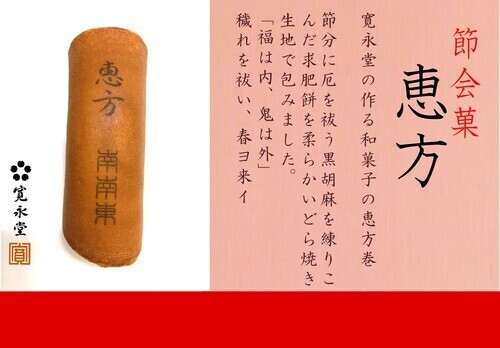 節会菓
恵方
寛永堂の作る和菓子の恵方巻
節分に厄を祓う黒胡麻を練りこ
んだ求肥餅を柔らかいどら焼き
生地で包みました。
「福は内、鬼は外」
穢れを祓い、春ヨ来イ
恵方
南南東
寛永堂
寛